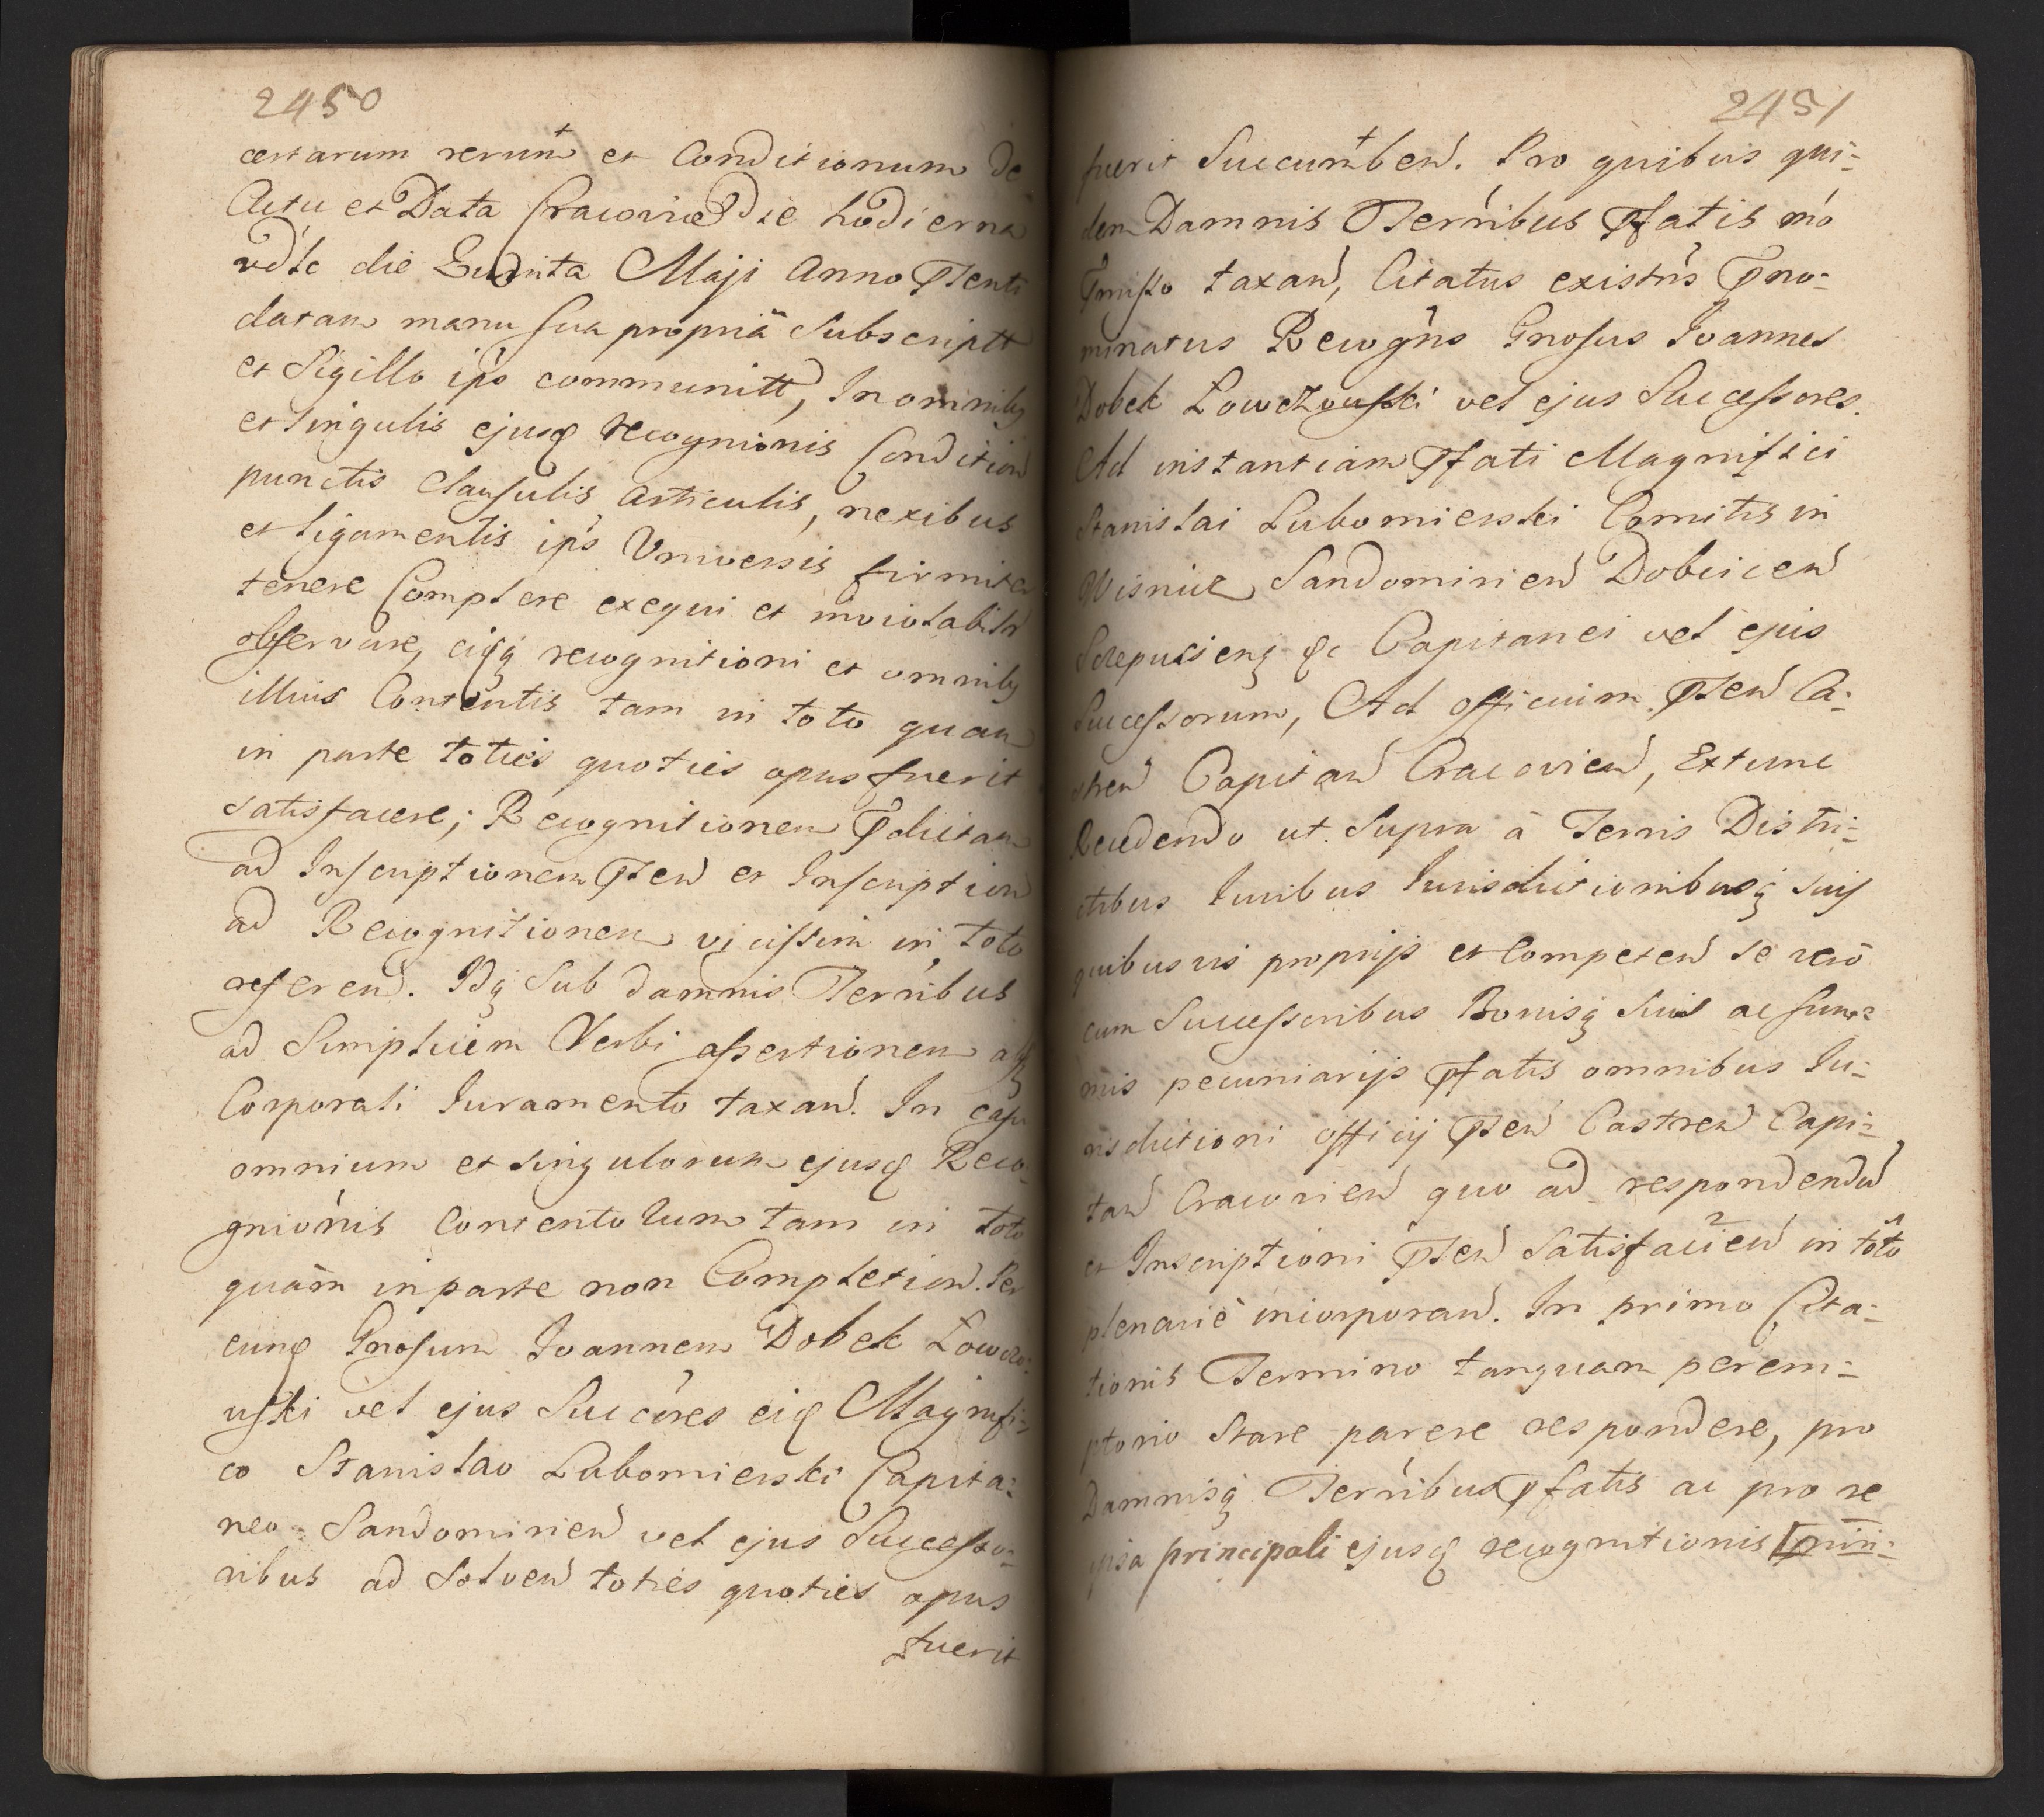 2450
certarum rerum et Conditionum de
Actu et Data Cracoviæ die hodierna
vdtc die Maji Anno Pſenti
datam manu ſua propriâ Subscriptt
et Sigillo ip̃o communitt, In omniby
et singulis ejusq recognionis Condition
punctis Clauſulis articulis, nexibus
et ligamentis ip̃s Universis firmiter
tenere Complere exequi et inviolabitr
obſervare, eiqq recognitioni et omniby
illius Contentis tam in toto quam
in parte toties quoties opus fuerit
satisfacere; Recognitionem Pdictam
ad Inſcriptionem Pſen et Inſcription
ad Recognitionem viciſſim in toto
referen. Idq Sub damnis Terribus
ad Simplicem Verbi aſſertionem
Corporali Iuramento taxan. In caſu
omnium et singulorum ejusq Reco-
gnionis Contentorum tam in toto
quàm in parte non Completion. Per
eunq Gnoſum Ioannem Dobek Lowczo-
uſki vel ejus Succores eiq Magnifi-
co Stanislao Lubomierski Capita-
neo Sandomirien vel ejus Succeſſo-
ribus ad Solven toties quoties opus
fuerit
2451
fuerit Succumben. Pro quibus qui-
dem Damnis Terribus Pfatis mo
Pmiſſo taxan, Citatus existns Pno-
minatus Recogns Gnoſus Ioannes
Dobek Lowczouſki vel ejus Succeſſores.
Ad instantiam Pfati Magnifici
Stanislai Lubomierski Comitis in
Wisnicz Sandomirien Dobcicen
Scepusienq &c Capitanei vel ejus
Succeſſorum, Ad officium Pſen Ca-
stren Capitan Cracovien, Extunc
Recedendo ut Supra à Terris Distri-
ctibus Iuribus Iurisdictionibusq suis
quibusvis proprijs et Competen se vero
cum Succeſſoribus Bonisq Suis ac ſum-
mis pecuniarijs Pfatis omnibus Iu-
risdictioni officij Pſen Castren Capi-
tan Cracovien quo ad respondendu
et Inscriptioni Pſen Satisfacien in toto
plenariè incorporan. In primo Cita-
tionis Termino tanquam perem-
ptorio Stare parere respondere, pro
Damnisq Terribus Pfatis ac pro re
ipsa principali ejusq recognitionis